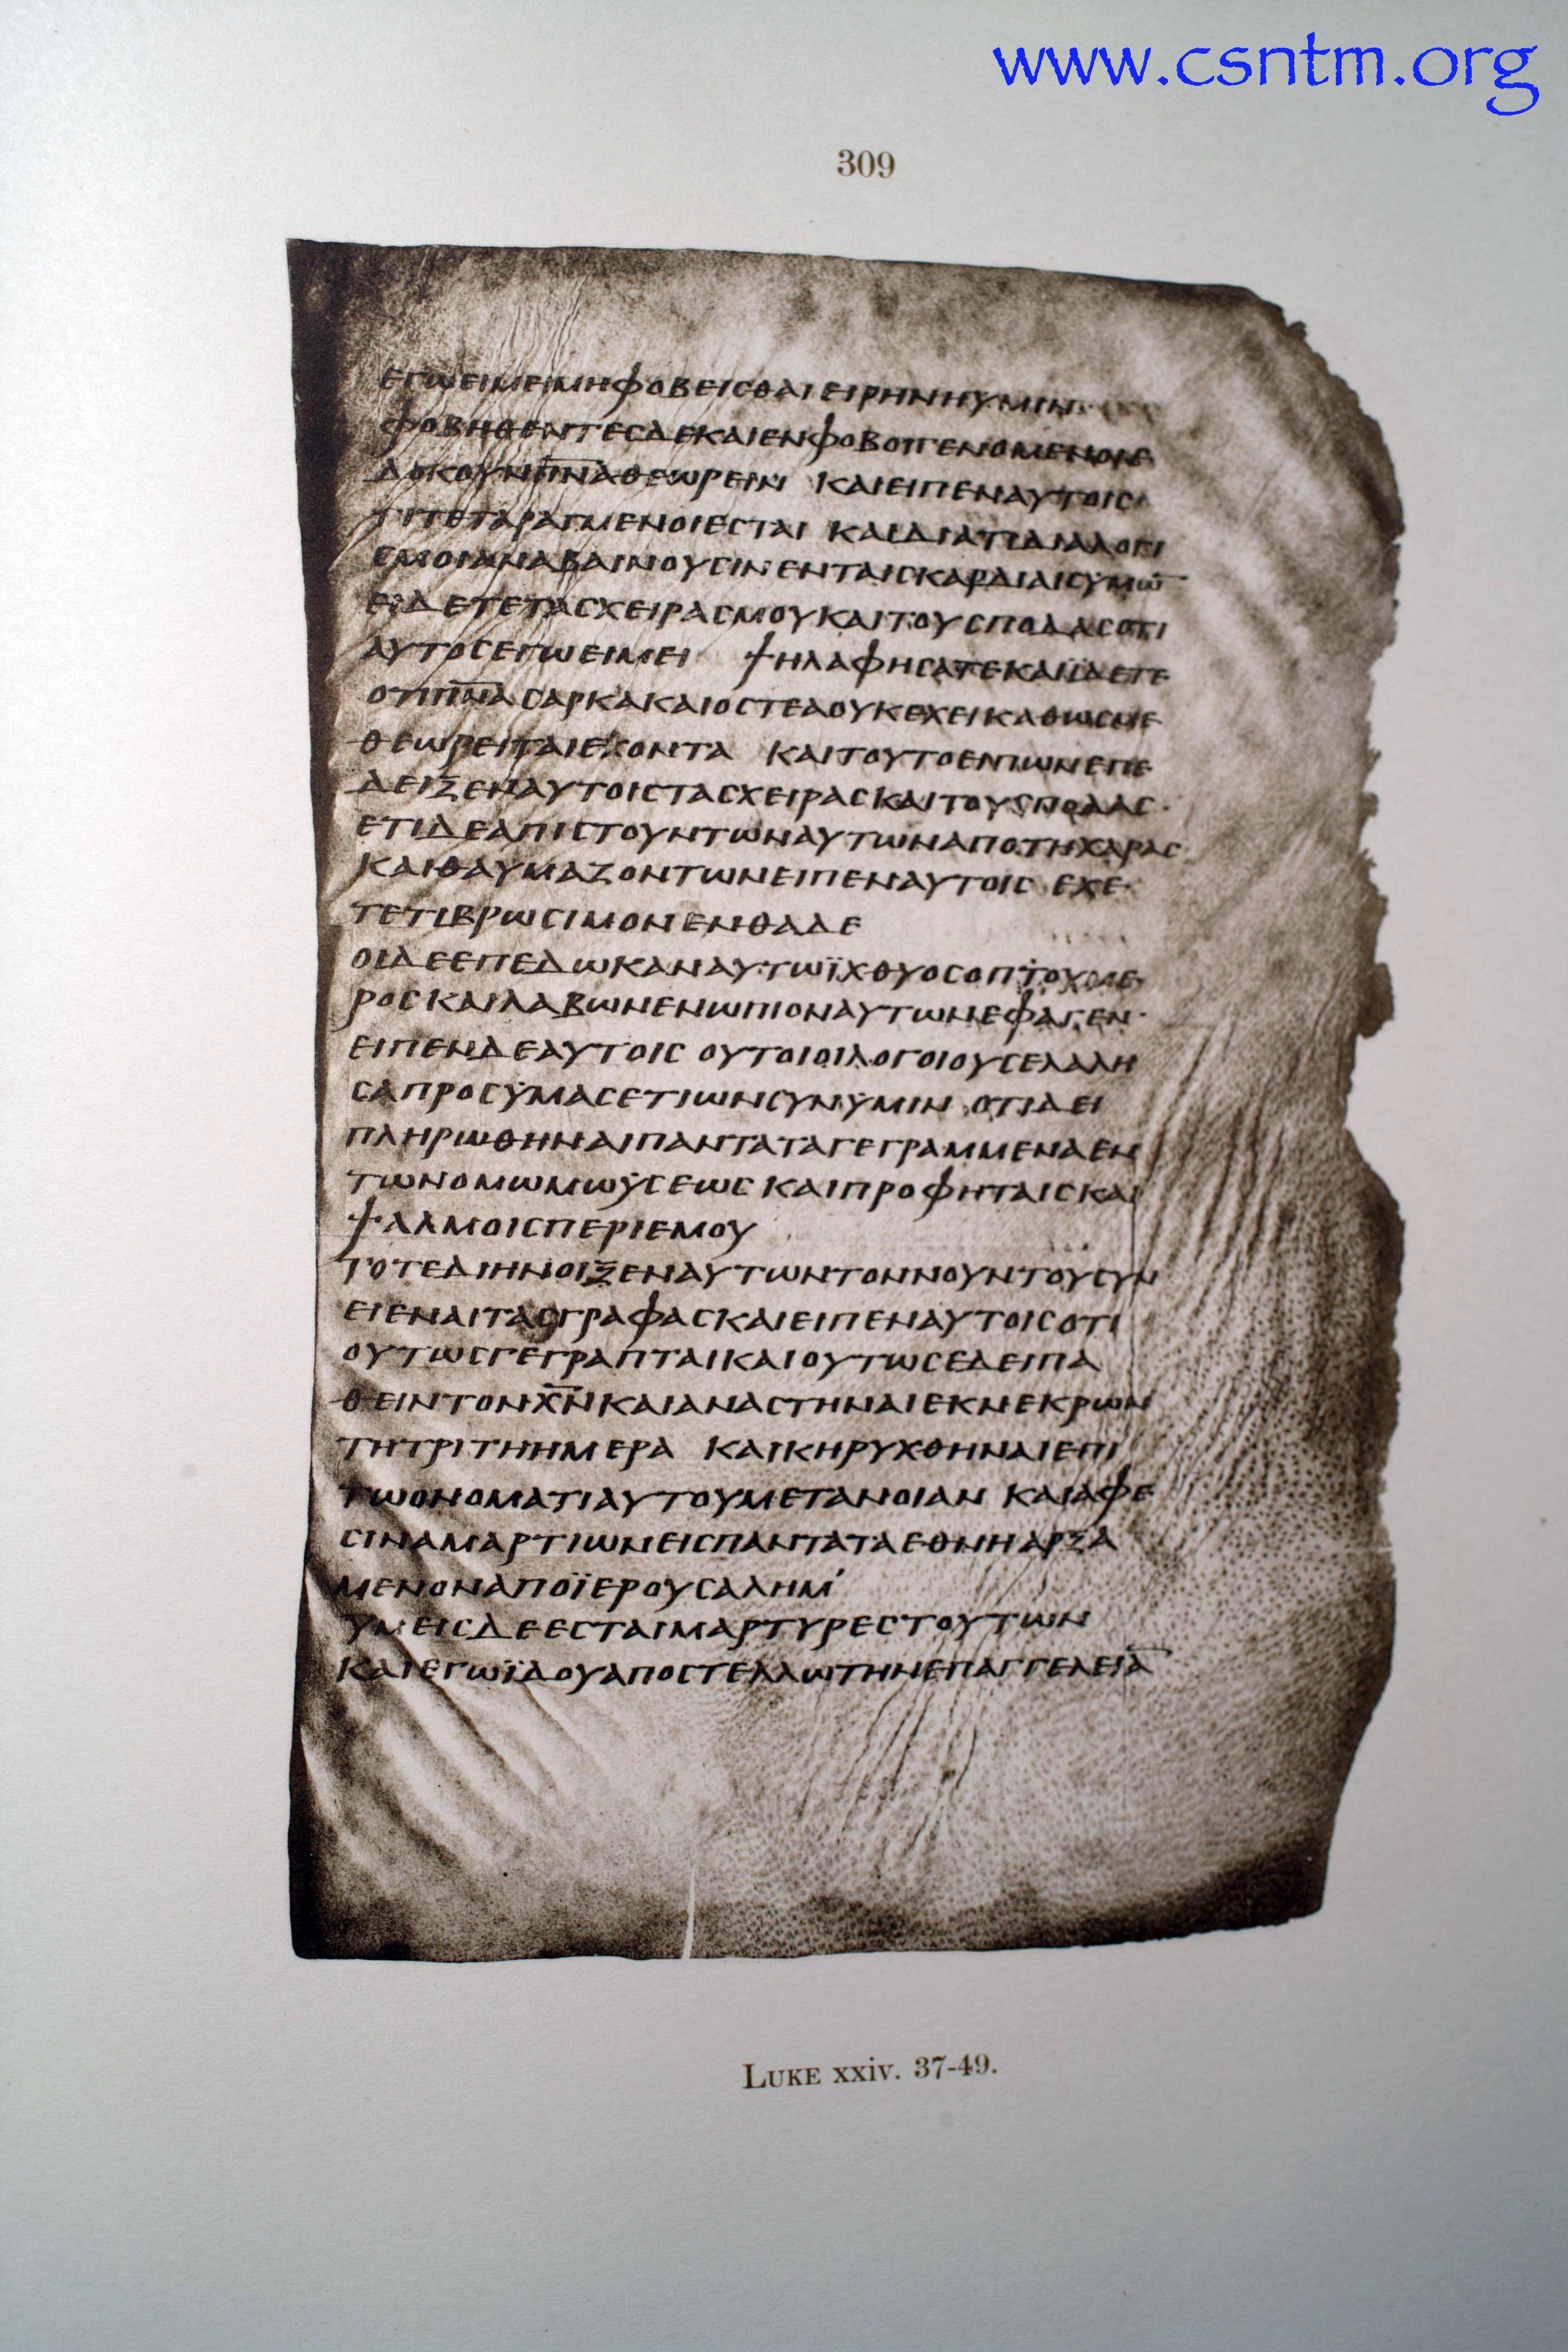 www.csntm.org
309
ΕΓΩΕΙΜΕΙΜΗΦΟΒΕΙСΘΑΙΕΙΡΗΝΗΥΜΙΝ·
ΦΟΒΗΘΕΝΤΕСΔΕΚΑΙΕΝΦΟΒΟΙΓΕΝΟΜΕΝΟΙΕ
ΔΟΚΟΥΝΠ̅Ν̅Α̅ΘΕΩΡΕΙΝ ΚΑΙΕΙΠΕΝΑΥΤΟΙС
ΤΙΤΕΤΑΡΑΓΜΕΝΟΙΕСΤΑΙ ΚΑΙΔΙΑΤΙΔΙΑΛΟΓΙ
СΜΟΙΑΝΑΒΑΙΝΟΥСΙΝΕΝΤΑΙСΚΑΡΔΙΑΙСΥΜΩ̅
ΕΙΔΕΤΕΤΑСΧΕΙΡΑСΜΟΥΚΑΙΤΟΥСΠΟΔΑСΟΤΙ
ΑΥΤΟСΕΓΩΕΙΜΕΙ ΨΗΛΑΦΗСΑΤΕΚΑΙΪΔΕΤΕ
ΟΤΙΠ̅Ν̅Α̅СΑΡΚΑΚΑΙΟСΤΕΑΟΥΚΕΧΕΙΚΑΘΩСΜΕ
ΘΕΩΡΕΙΤΑΙΕΧΟΝΤΑ ΚΑΙΤΟΥΤΟΕΙΠΩΝΕΠΕ
ΔΕΙΞΕΝΑΥΤΟΙСΤΑСΧΕΙΡΑСΚΑΙΤΟΥСΠΟΔΑС·
ΕΤΙΔΕΑΠΙСΤΟΥΝΤΩΝΑΥΤΩΝΑΠΟΤΗΧΑΡΑС
ΚΑΙΘΑΥΜΑΖΟΝΤΩΝΕΙΠΕΝΑΥΤΟΙС ΕΧΕ·
ΤΕΤΙΒΡΩСΙΜΟΝΕΝΘΑΔΕ
ΟΙΔΕΕΠΕΔΩΚΑΝΑΥΤΩΪΧΘΥΟСΟΠΤΟΥΜΕ
ΡΟСΚΑΙΛΑΒΩΝΕΝΩΠΙΟΝΑΥΤΩΝΕΦΑΓΕΝ·
ΕΙΠΕΝΔΕΑΥΤΟΙС ΟΥΤΟΙΟΙΛΟΓΟΙΟΥСΕΛΑΛΗ
СΑΠΡΟСΫΜΑСΕΤΙΩΝСΥΝΫΜΙΝ ΟΤΙΔΕΙ
ΠΛΗΡΩΘΗΝΑΙΠΑΝΤΑΤΑΓΕΓΡΑΜΜΕΝΑΕΝ
ΤΩΝΟΜΩΜΩΫСΕΩСΚΑΙΠΡΟΦΗΤΑΙСΚΑΙ
ΨΑΛΜΟΙСΠΕΡΙΕΜΟΥ
ΤΟΤΕΔΙΗΝΟΙΞΕΝΑΥΤΩΝΤΟΝΝΟΥΝΤΟΥСΥΝ
ΕΙΕΝΑΙΤΑСΓΡΑΦΑСΚΑΙΕΙΠΕΝΑΥΤΟΙСΟΤΙ
ΟΥΤΩСΓΕΓΡΑΠΤΑΙΚΑΙΟΥΤΩСΕΔΕΙΠΑ
ΘΕΙΝΤΟΝΧ̅Ν̅ΚΑΙΑΝΑСΤΗΝΑΙΕΚΝΕΚΡΩΝ
ΤΗΤΡΙΤΗΗΜΕΡΑ ΚΑΙΚΗΡΥΧΘΗΝΑΙΕΠΙ
ΤΩΟΝΟΜΑΤΙΑΥΤΟΥΜΕΤΑΝΟΙΑΝ ΚΑΙΑΦΕ
СΙΝΑΜΑΡΤΙΩΝΕΙСΠΑΝΤΑΤΑΕΘΝΗΑΡΞΑ
ΜΕΝΟΝΑΠΟΪΕΡΟΥСΑΛΗΜ
ΥΜΕΙСΔΕΕСΤΑΙΜΑΡΤΥΡΕСΤΟΥΤΩΝ
ΚΑΙΕΓΩΪΔΟΥΑΠΟСΤΕΛΛΩΤΗΝΕΠΑΓΓΕΛΕΙΑ̅
LUKE xxiv. 37-49.